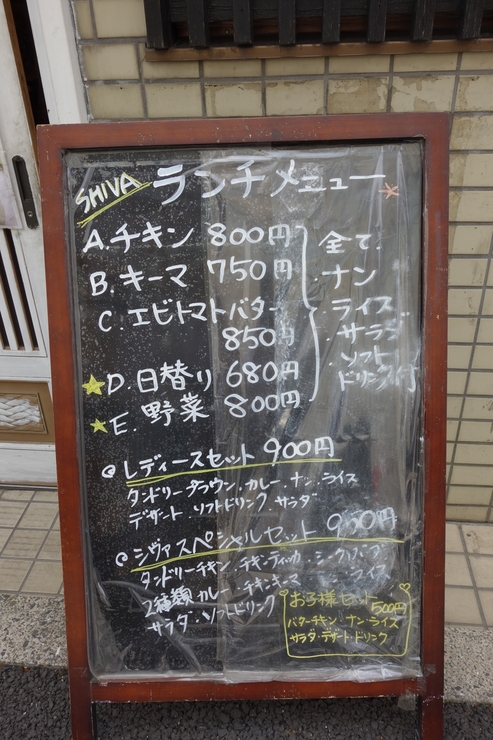 SHIVA ランチメニュー
A. チキン 800円
B. キーマ 750円
C. エビトマトバター
850円
D. 日替り 680円
E. 野菜 800円
全て.
・ナン
・ライス
・サラダ
・ソフト
ドリンク付
レディースセット 900円
タンドリープラウン.カレー.ナン.ライス
デザート.ソフトドリンク.サラダ
シヴァスペシャルセット 950円
タンドリーチキン.チキンティッカ.シークカバブ
2種類カレー.チキンキーマ ライス
サラダ・ソフトドリンク
お子様セット
500円
バターチキン・ナン・ライス
サラダ・デザート・ドリンク